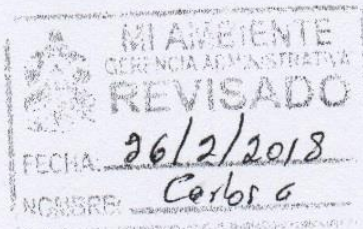 MI AMBIENTE
GERENCIA ADMINISTRATIVA
REVISADO
FECHA: 26/2/2018
NOMBRE: Carlos G